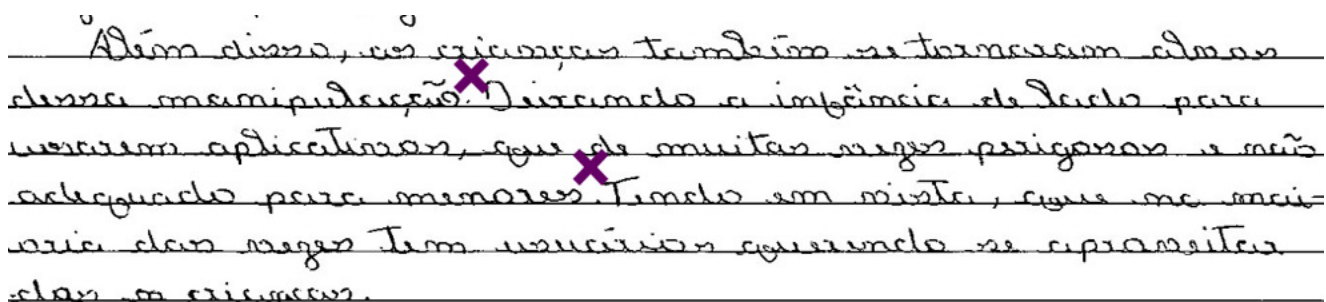 Além disso, as crianças também se tornaram alvos
dessa manipulação. Deixando a infância de lado para
usarem aplicativos, que de muitas vezes perigosos e não
adequado para menores. Tendo em vista, que na mai-
oria das vezes tem usuários querendo se aproveitar
das crianças.